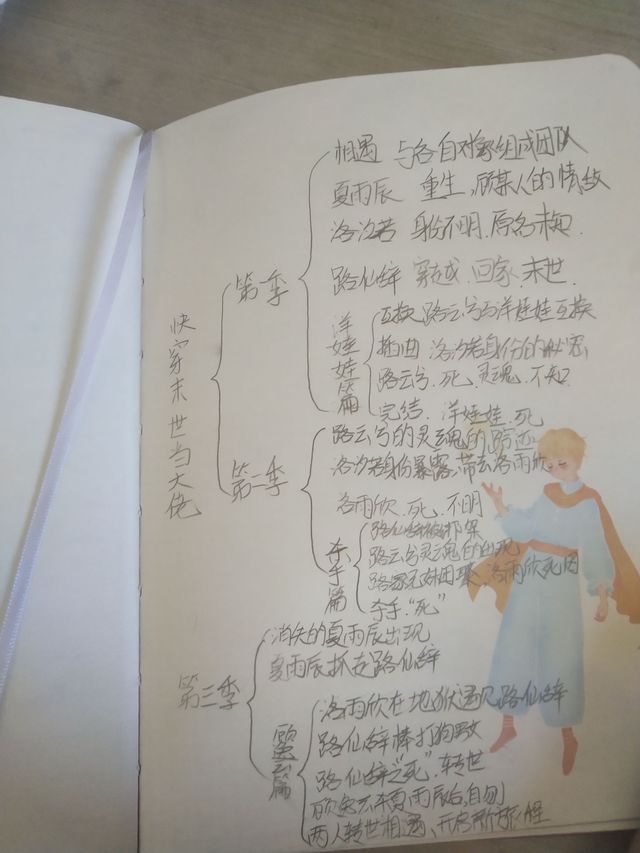 快穿末世当大佬
第一季
相遇 与各自对象组成团队
夏雨辰 重生,顾某人的情敌
洛汐若 身份不明.原名未知.
路仙辞 穿越.回家.末世.
洋娃娃篇
互换 路云兮与洋娃娃互换
插曲 洛汐若身份的秘密
路云兮.死.灵魂.不知
完结.洋娃娃.死
第二季
路云兮的灵魂的踪迹
洛汐若身份暴露,带去洛雨欣
洛雨欣.死.不明
杀手篇
路仙辞被绑架
路云兮灵魂的出现
洛雨欣死因
杀手"死"
第三季
消失的夏雨辰出现
夏雨辰抓走路仙辞
篇
洛雨欣在地狱遇见路仙辞
路仙辞棒打狗男女
路仙辞"死".转世
夏雨辰后,自刎
两人转世相遇、开启新旅程